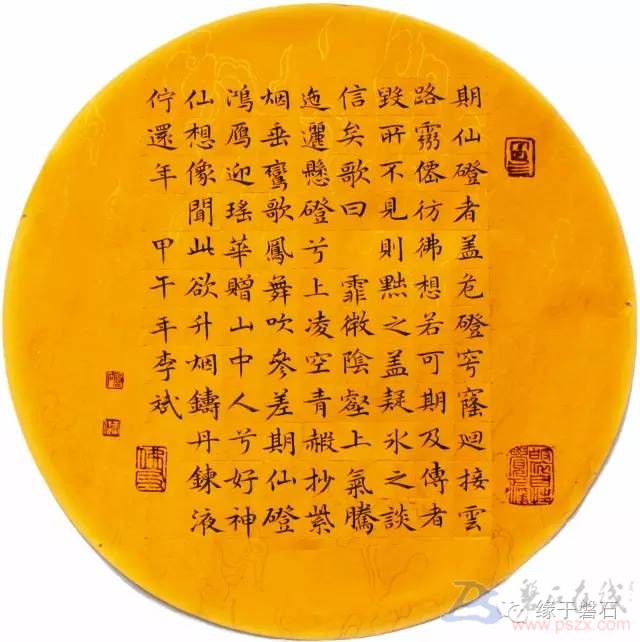 期仙磴者盖危磴穹窿迴接雲
路窮僊彷彿想若可期及傳者
毀所不見則黙之盖疑氷之談
信矣歌曰 霏微陰壑上氣騰
迤邐懸磴兮上凌空青赮抄紫
烟垂鸞歌鳳舞吹參差期仙磴
鴻鴈迎瑤華贈山中人兮好神
仙想像聞此欲升烟鑄丹鍊液
佇還年 甲午年李斌
磐石在线
缘于磐石
www.pszx.com